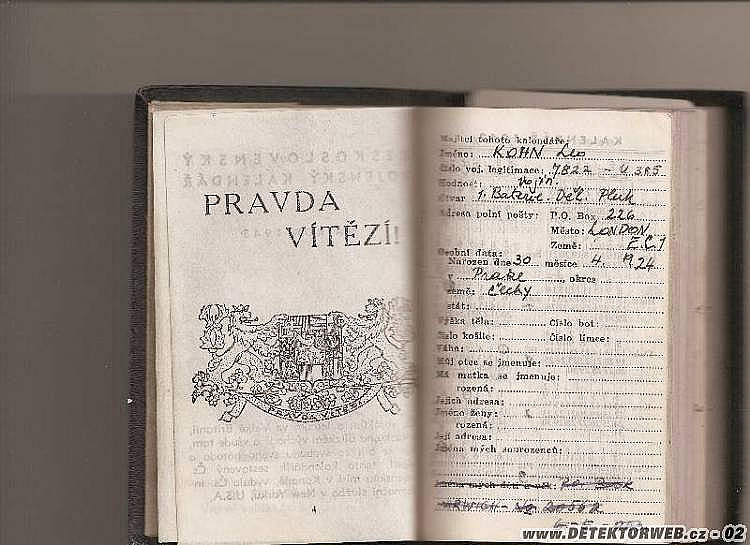 PRAVDA
VÍTĚZÍ!
PRAVDA VÍTĚZÍ
4
Majitel tohoto kalendáře:
Jméno: KOHN Leo
Číslo voj. legitimace: 7822 - U 385
Hodnost: vojín.
Útvar 1. Baterie. Děl. Pluk
Adresa polní pošty: P.O. Box 226
Město: LONDON
Země: E.C.1
Osobní data:
Narozen dne 30 měsíce 4. 1924
v Praze, okres
země: Čechy
stát:
Výška těla: Číslo bot:
Číslo košile: Číslo límce:
Váha:
Můj otec se jmenuje:
Má matka se jmenuje:
rozená:
Jejich adresa:
Jméno ženy:
rozená:
Její adresa:
Jména mých sourozenců:
www.DETEKTORWEB.cz - 02